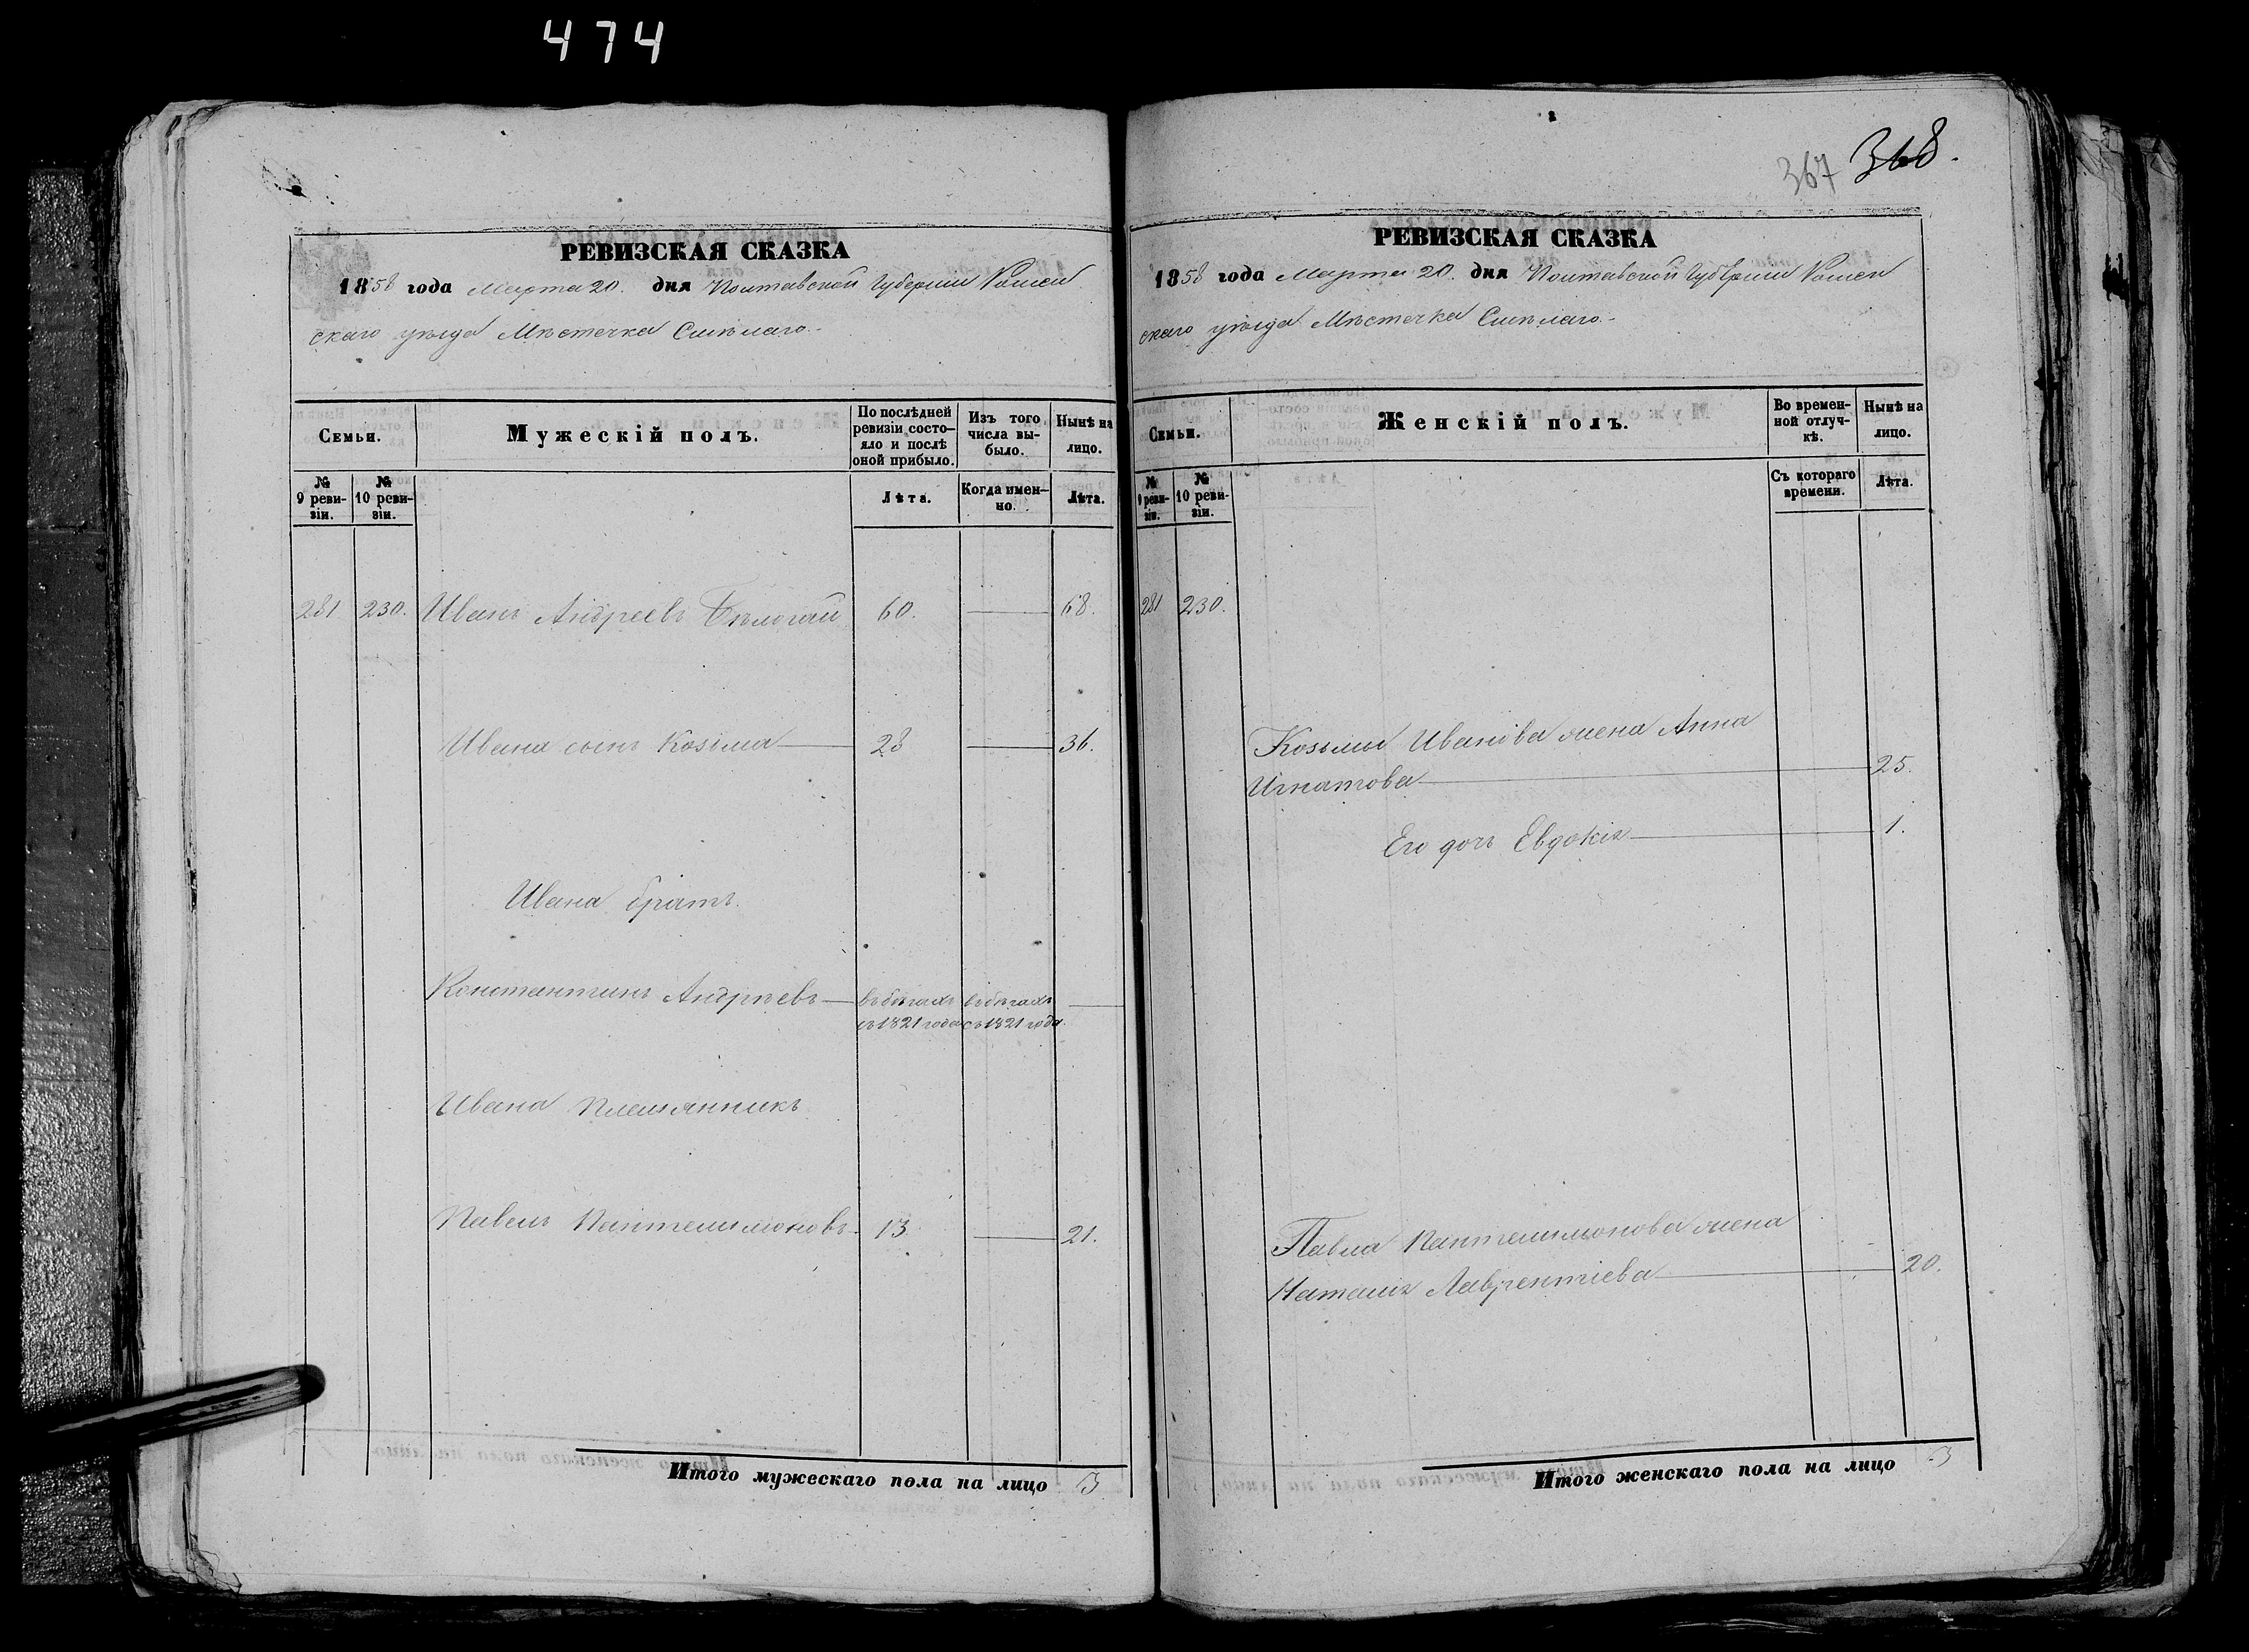 474
РЕВИЗСКАЯ СКАЗКА
1858 года Марта 20. дня Полтавской Губернии Ромен
скаго уѣзда Мѣстечка Смѣлаго.
Семьи.
Мужескій полъ.
По послѣдней ревизіи состо-
яло и послѣ
оной прибыло.
Изъ того
числа вы-
было.
Нынѣ на
лицо.
№
9 реви-
зіи.
№
10 реви-
зіи.
Лѣта.
Когда имен-
но.
Лѣта.
281 230. Иванъ Андреевъ 60. 68.
Ивана сынъ Козьма 28 36.
Ивана братъ.
Константинъ Андрѣевъ въ бѣгахъ въ бѣгахъ
съ 1821 года съ 1821 года.
Ивана племянникъ
Павелъ Пантелимоновъ 13. 21.
Итого мужескаго пола на лицо 3
367 368.
РЕВИЗСКАЯ СКАЗКА
1858 года Марта 20. дня Полтавской Губерніи Ромен
скаго уѣзда Мѣстечка Смѣлаго.
Семьи.
Женскій полъ.
Во времен-
ной отлуч-
кѣ.
Нынѣ на
лицо.
№
9 реви-
зіи.
№
10 реви-
зіи.
Съ котораго
времени.
Лѣта.
281 230.
Козьмы Иванова жена Анна
Игнатова 25.
Его дочь Евдокія 1.
Павла Пантелимонова жена
Наталія Лаврентіева 20.
Итого женскаго пола на лицо 3